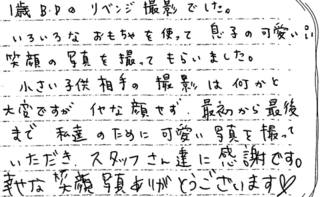 1歳 B・Dの リベンジ 撮影でした。
いろいろな おもちゃを使って 息子の可愛い
笑顔の写真を撮ってもらいました。
小さい子供相手の 撮影は何かと
大変ですが イヤな顔せず 最初から最後
まで 私達のために可愛い写真を撮って
いただき、スタッフさん達に感謝です。
幸せな 笑顔写真ありがとうございます♡